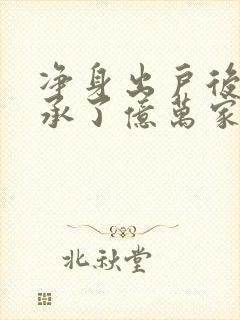 净身出戶後
承了億萬家
北秋堂